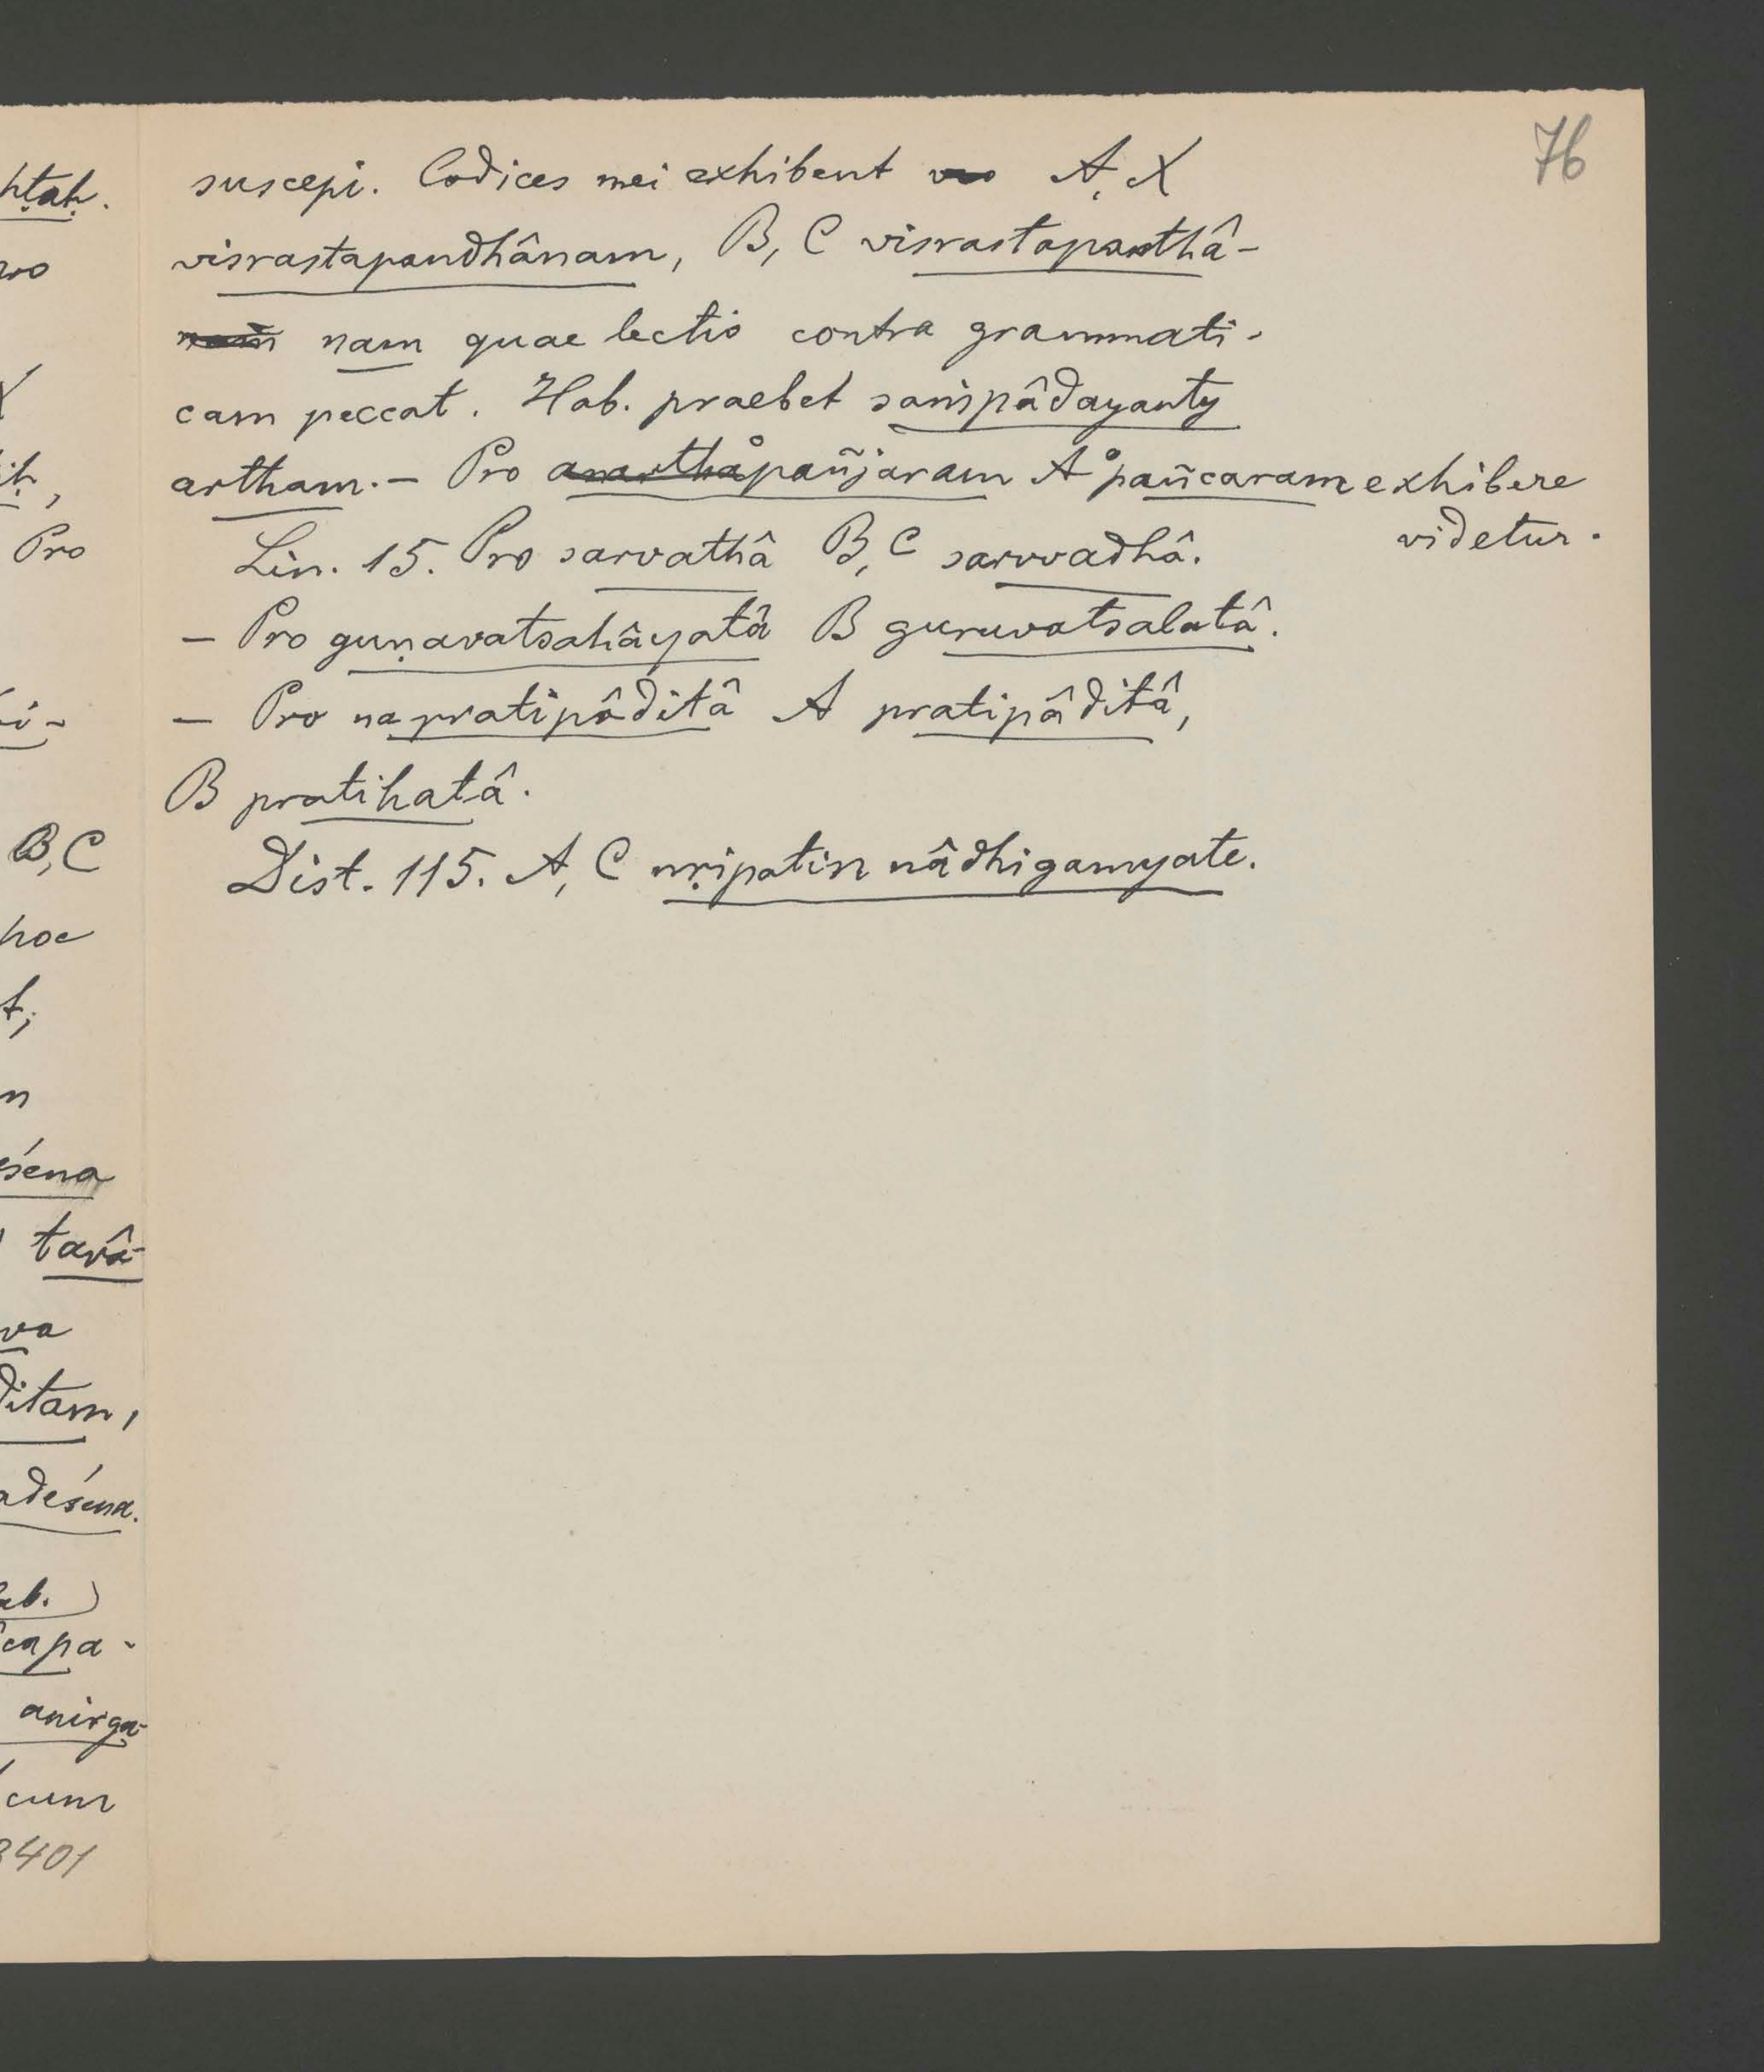 76
suscepi. Codices mei exhibent A, X
visrastapandhânam, B, C visrastapanthâ-
nam quae lectio contra grammati-
cam peccat. Hab. praebet saṁpâdayanty
artham. – Pro anartha°pañjaram A °pañcaram exhibere
videtur.
Lin. 15. Pro sarvathâ B, C sarvvadhâ.
– Pro guṇavatsahâyatâ B guruvatsalatâ.
– Pro na pratipâditâ A pratipâditâ,
B pratihatâ.
Dist. 115. A, C nṛipatin nâdhigamyate.
ḥṭaḥ.
X
Pro
B, C
hoc
t;
n
śena
tavâ-
va
ditam,
adeśena.
ab.)
capa-
anirga-
cum
3401